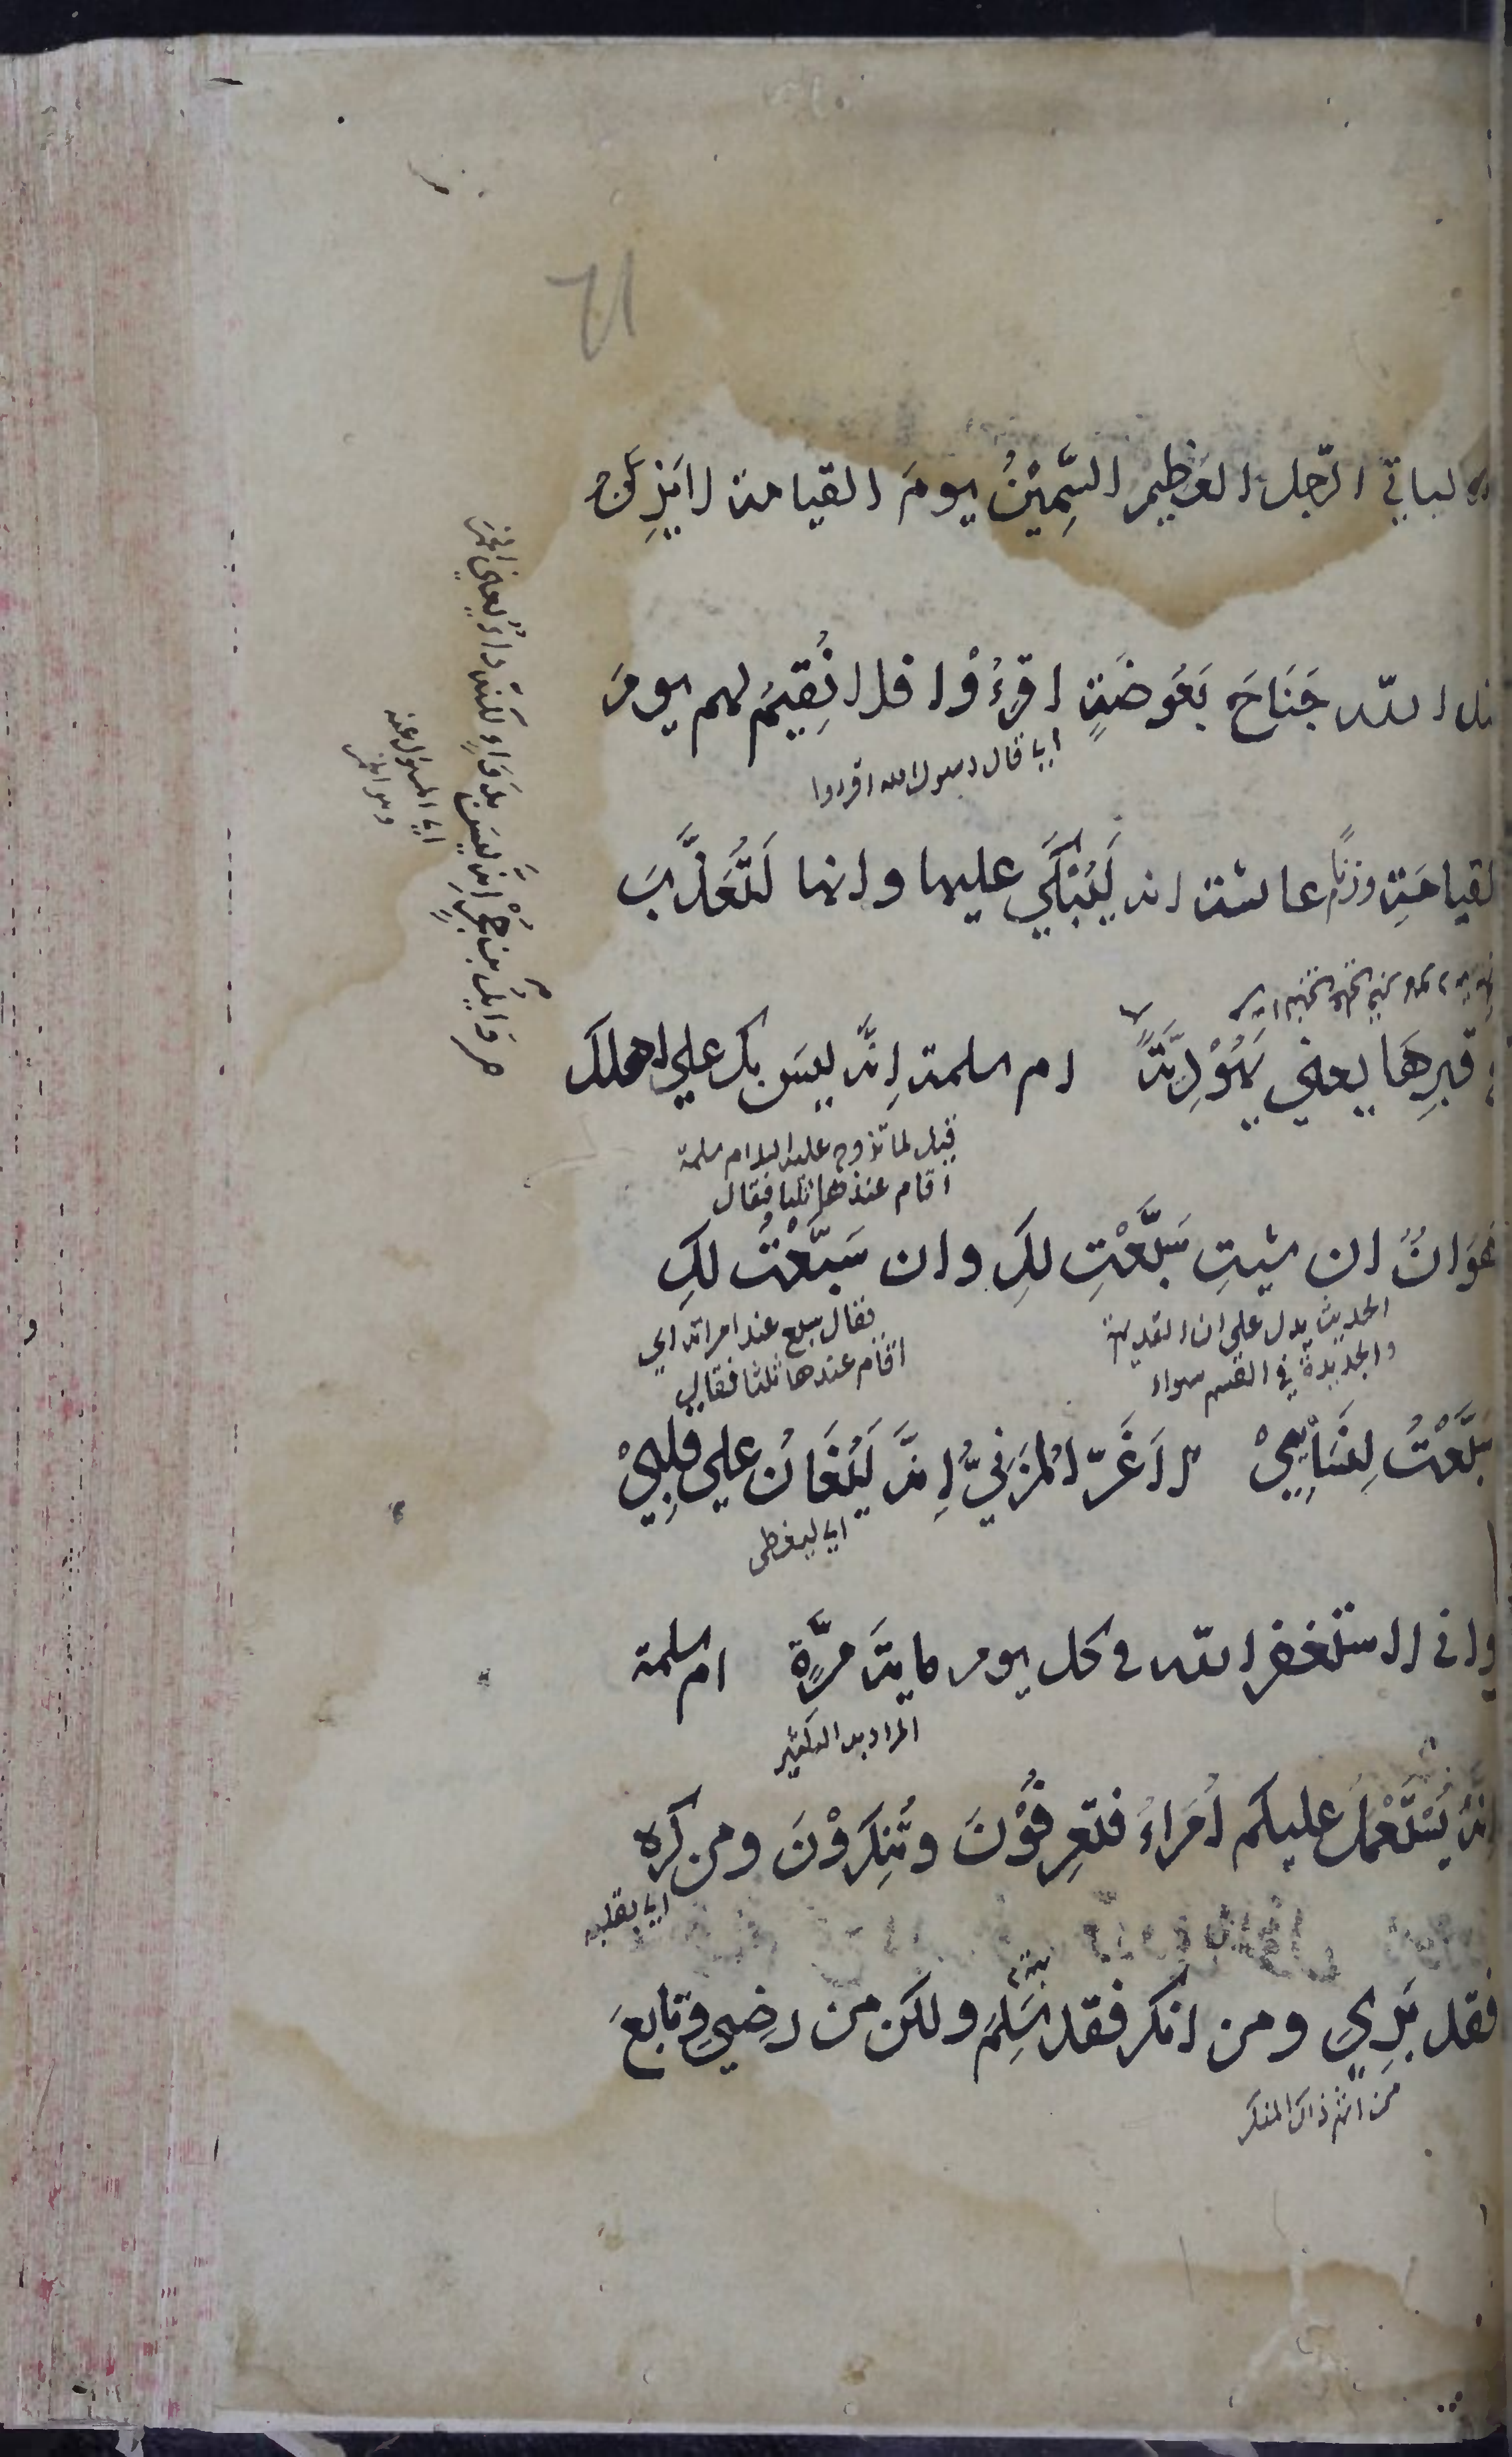 ليأتي الرّجل العظيم السَّمِيْنُ يومَ القيامة لا يَزِنُ
عند الله جَنَاحَ بَعُوضَةٍ اقرءُوْا فلا نُقِيْمُ لهم يومَ
اي قال رسول الله اقرءوا
القيامَةِ وزنا عائشة انه لَيُبْكَي عليها وانها لَتُعَذَّبُ
في قبرِهَا يعني يَهُوْدِيَّةً ام سلمة اِنَّه ليسَ بكِ على اهلك
قيل لما تزوج عليه السلام ام سلمة
اقام عندها ثلثا فقال
هَوَانٌ ان شِيتِ سَبَّعْتِ لكِ وان سَبَّعْتُ لكِ
الحديث يدل على ان القديمة
والجديدة في القسم سواء
فقال سبع عند امراته اي
اقام عندها ثلثا فقال
سَبَّعْتُ لِنِسَاْيِيْ الاَغَرّ المُزَنِيُّ اِنَّه لَيُغَانُ على قلبِيْ
اي ليغطى
واني لاستغفر الله في كل يوم ماية مَرَّةٍ ام سلمة
المراد به التكثير
اِنَّه يُسْتَعْمَلُ عليكم اُمَرَاءُ فتعرِفُوْنَ وتُنكِرُوْنَ ومن كره
اي بقلبه
فقد بَرِيَ ومن انكر فقد سَلِمَ ولكن من رضِيَ وتابعَ
من اثم ذاك المنكر
م وَايلُ بن حُجْرٍ اِنَّه ليسَ بدَوَاءٍ لكنَّه دَاءٌ يعني الخمرَ
اي المسئول عنه
وهو الخمر